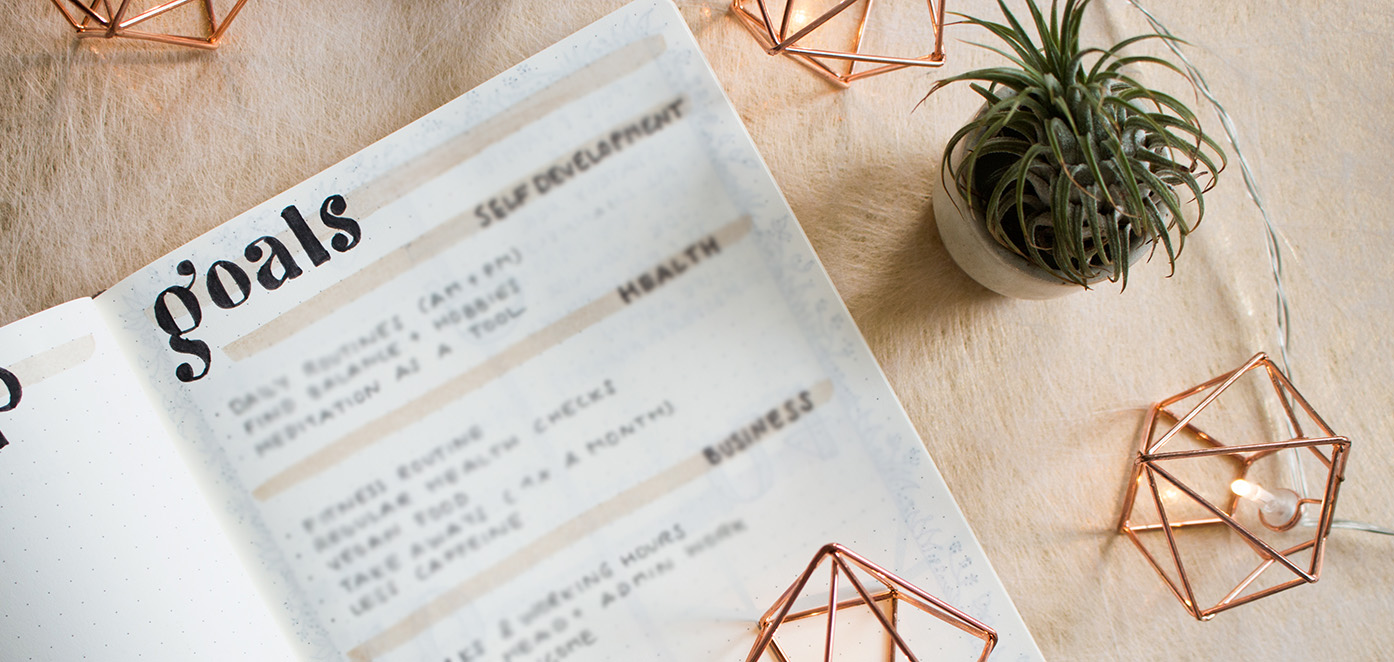 goals
SELF DEVELOPMENT
DAILY ROUTINES (AM + PM)
FIND BALANCE + HOBBIES
MEDITATION AS A TOOL
HEALTH
FITNESS ROUTINE
REGULAR HEALTH CHECKS
VEGAN FOOD
TAKE AWAYS A MONTH)
LESS CAFFEINE
BUSINESS
WORKING HOURS
AHEAD + ADMIN WORK